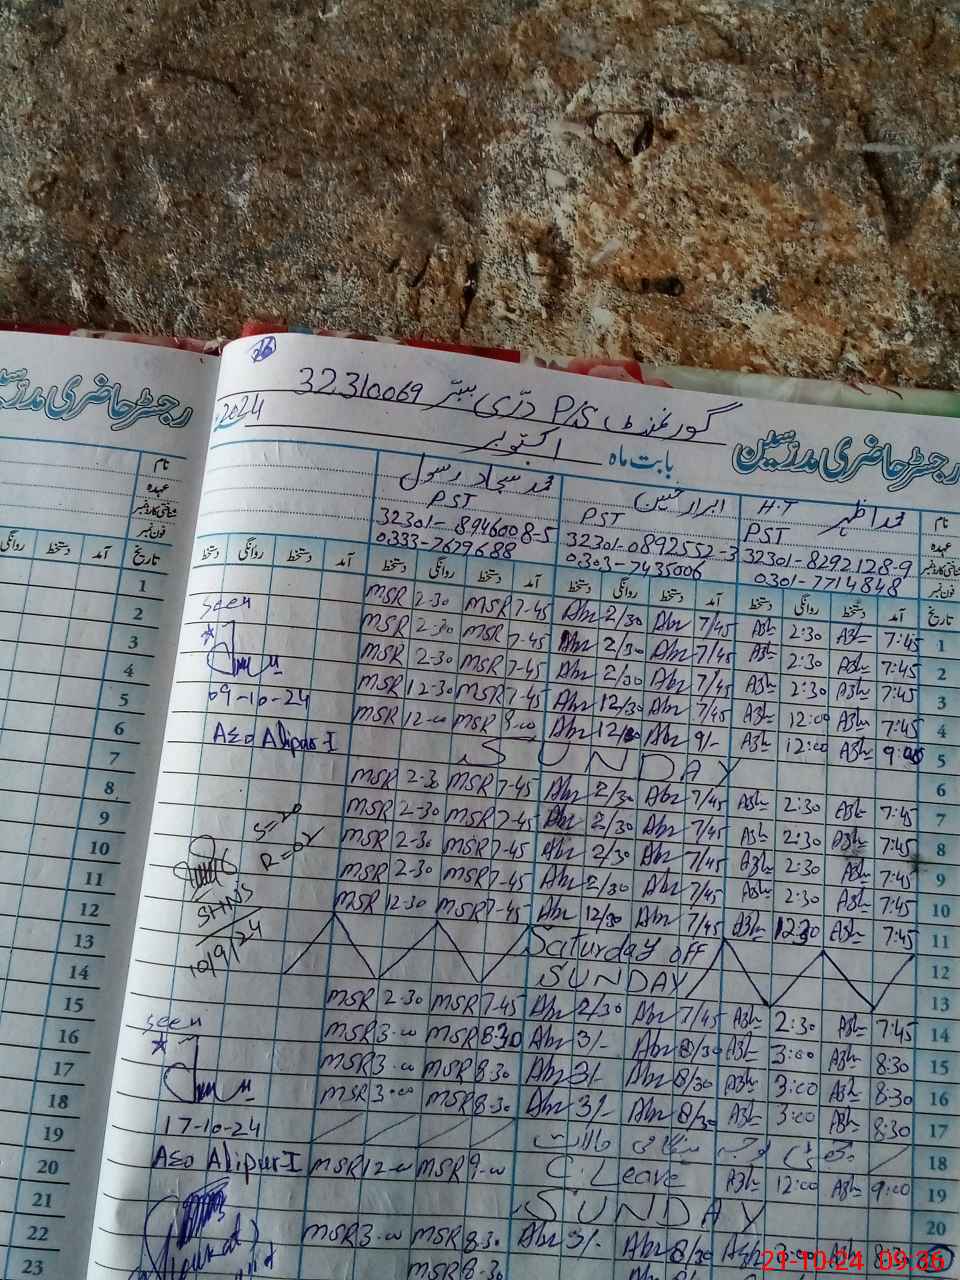 26
رجسٹر حاضری مدرسین
گورنمنٹ P/S درّی 32310069
2024
بابت ماہ اکتوبر
نام محمد اظہر H.T ابرار حسین محمد سجاد رسول
عہدہ PST PST PST
شناختی کارڈ نمبر 32301-8292128-9 32301-0892552-3 32301-8946008-5
فون نمبر 0301-7714848 0303-7435006 0333-7679688
تاریخ آمد دستخط روانگی دستخط آمد دستخط روانگی دستخط آمد دستخط روانگی دستخط آمد دستخط روانگی دستخط
1 7:45 Azh 2:30 Azh 7/45 Abr 2/30 Abr 7-45 MSR 2-30 MSR
2 7:45 Azh 2:30 Azh 7/45 Abr 2/30 Abr 7-45 MSR 2-30 MSR
3 7:45 Azh 2:30 Azh 7/45 Abr 2/30 Abr 7-45 MSR 2-30 MSR
4 7:45 Azh 12:00 Azh 7/45 Abr 12/30 Abr 7-45 MSR 12-30 MSR
5 9:00 Azh 12:00 Azh 9/- Abr 12/00 Abr 9-00 MSR 12-00 MSR
6 SUNDAY
7 7:45 Azh 2:30 Azh 7/45 Abr 2/30 Abr 7-45 MSR 2-30 MSR
8 7:45 Azh 2:30 Azh 7/45 Abr 2/30 Abr 7-45 MSR 2-30 MSR
9 7:45 Azh 2:30 Azh 7/45 Abr 2/30 Abr 7-45 MSR 2-30 MSR
10 7:45 Azh 2:30 Azh 7/45 Abr 2/30 Abr 7-45 MSR 2-30 MSR
11 7:45 Azh 12:30 Azh 7/45 Abr 12/30 Abr 7-45 MSR 12-30 MSR
12 Saturday off
13 SUNDAY
14 7:45 Azh 2:30 Azh 7/45 Abr 2/30 Abr 7-45 MSR 2-30 MSR
15 8:30 Azh 3:00 Azh 8/30 Abr 3/- Abr 8:30 MSR 3-00 MSR
16 8:30 Azh 3:00 Azh 8/30 Abr 3/- Abr 8-30 MSR 3-00 MSR
17 8:30 Azh 3:00 Azh 8/30 Abr 3/- Abr 8-30 MSR 3-00 MSR
18
19 9:00 Azh 12:00 Azh C. Leave 9-00 MSR 12-00 MSR
20 SUNDAY
8:30 Azh 3:00 Azh 8/30 Abr 3/- Abr 8-30 MSR 3-00 MSR
8-30 MSR
Seen
09-10-24
AEO Alipur-I
S=28
R=02
SHNS
10/9/24
Seen
17-10-24
AEO Alipur I
رجسٹر حاضری مدرسین
نام
عہدہ
شناختی کارڈ نمبر
فون نمبر
تاریخ آمد دستخط روانگی
1
2
3
4
5
6
7
8
9
10
11
12
13
14
15
16
17
18
19
20
21
22
23
21-10-24 09:36